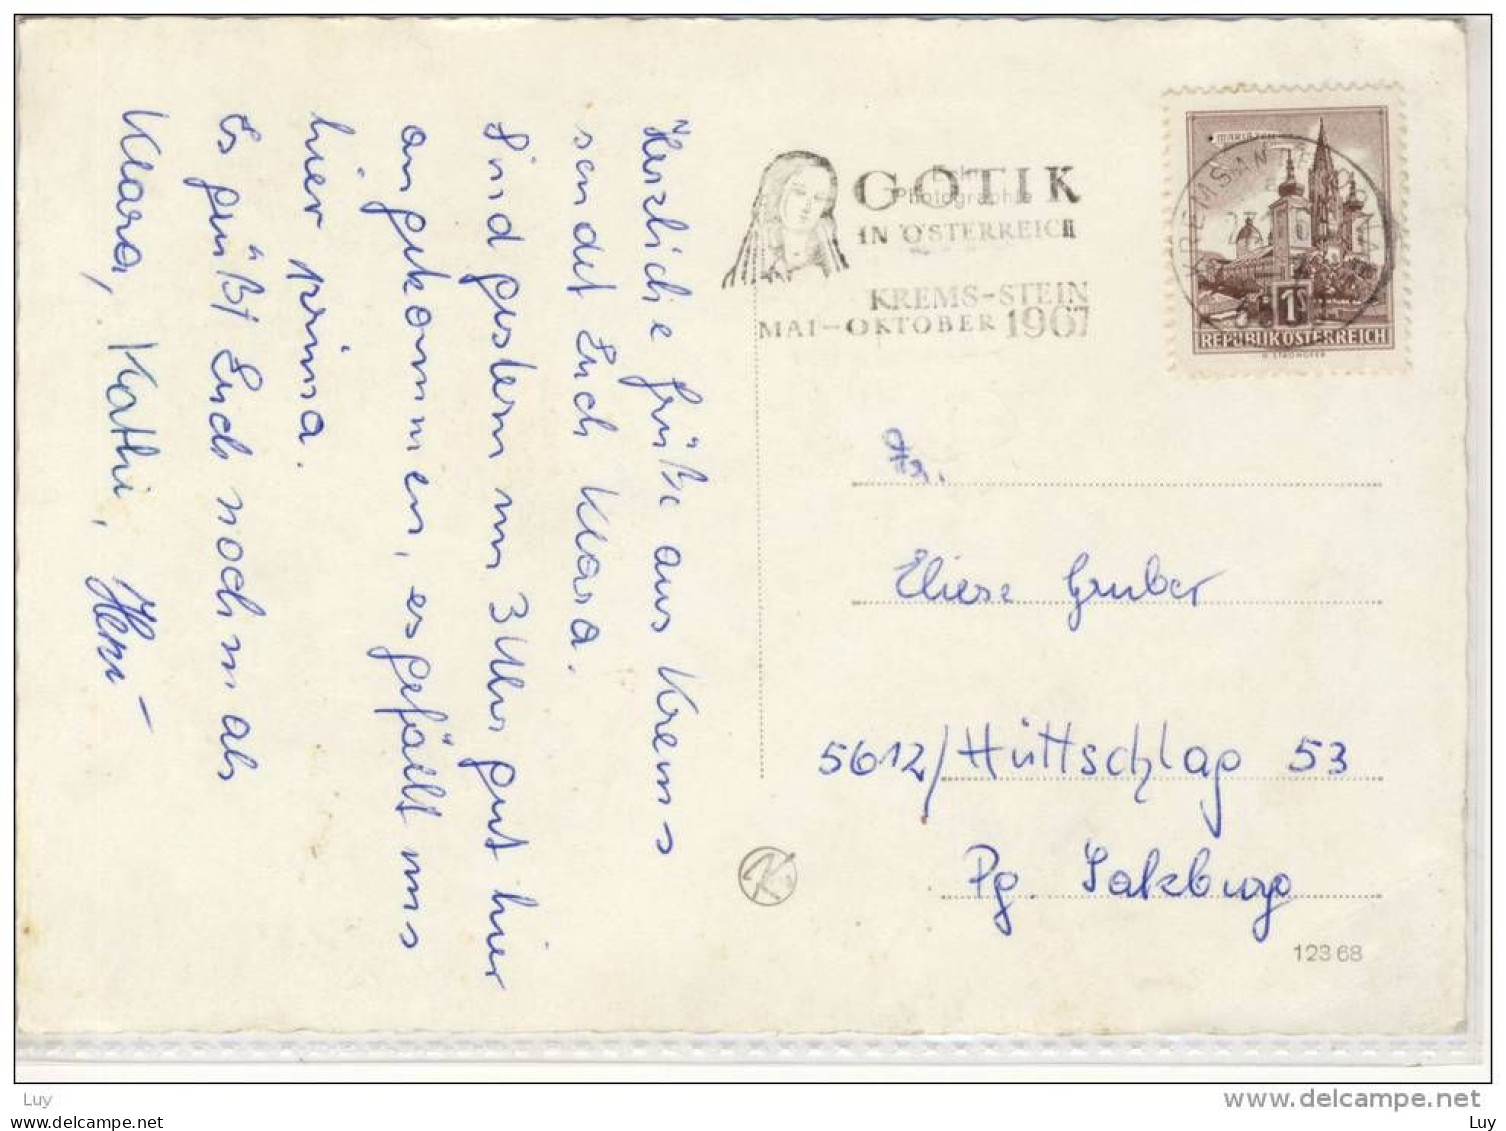 Herzliche Grüße aus Krems
sendet Euch Klara.
Sind gestern um 3 Uhr gut hier
angekommen, es gefällt uns
hier prima.
Es grüßt Euch nochmals
Klara, Kathi,
GOTIK
IN ÖSTERREICH
KREMS-STEIN
MAI-OKTOBER 1967
Photographie
MARIAZELL
1S
REPUBLIK ÖSTERREICH
KREMS AN DER DONAU
Eliese Gruber
5612/Hüttschlag 53
Pg. Salzburg
K
123 68
Luy
www.delcampe.net
www.delcampe.net
Luy